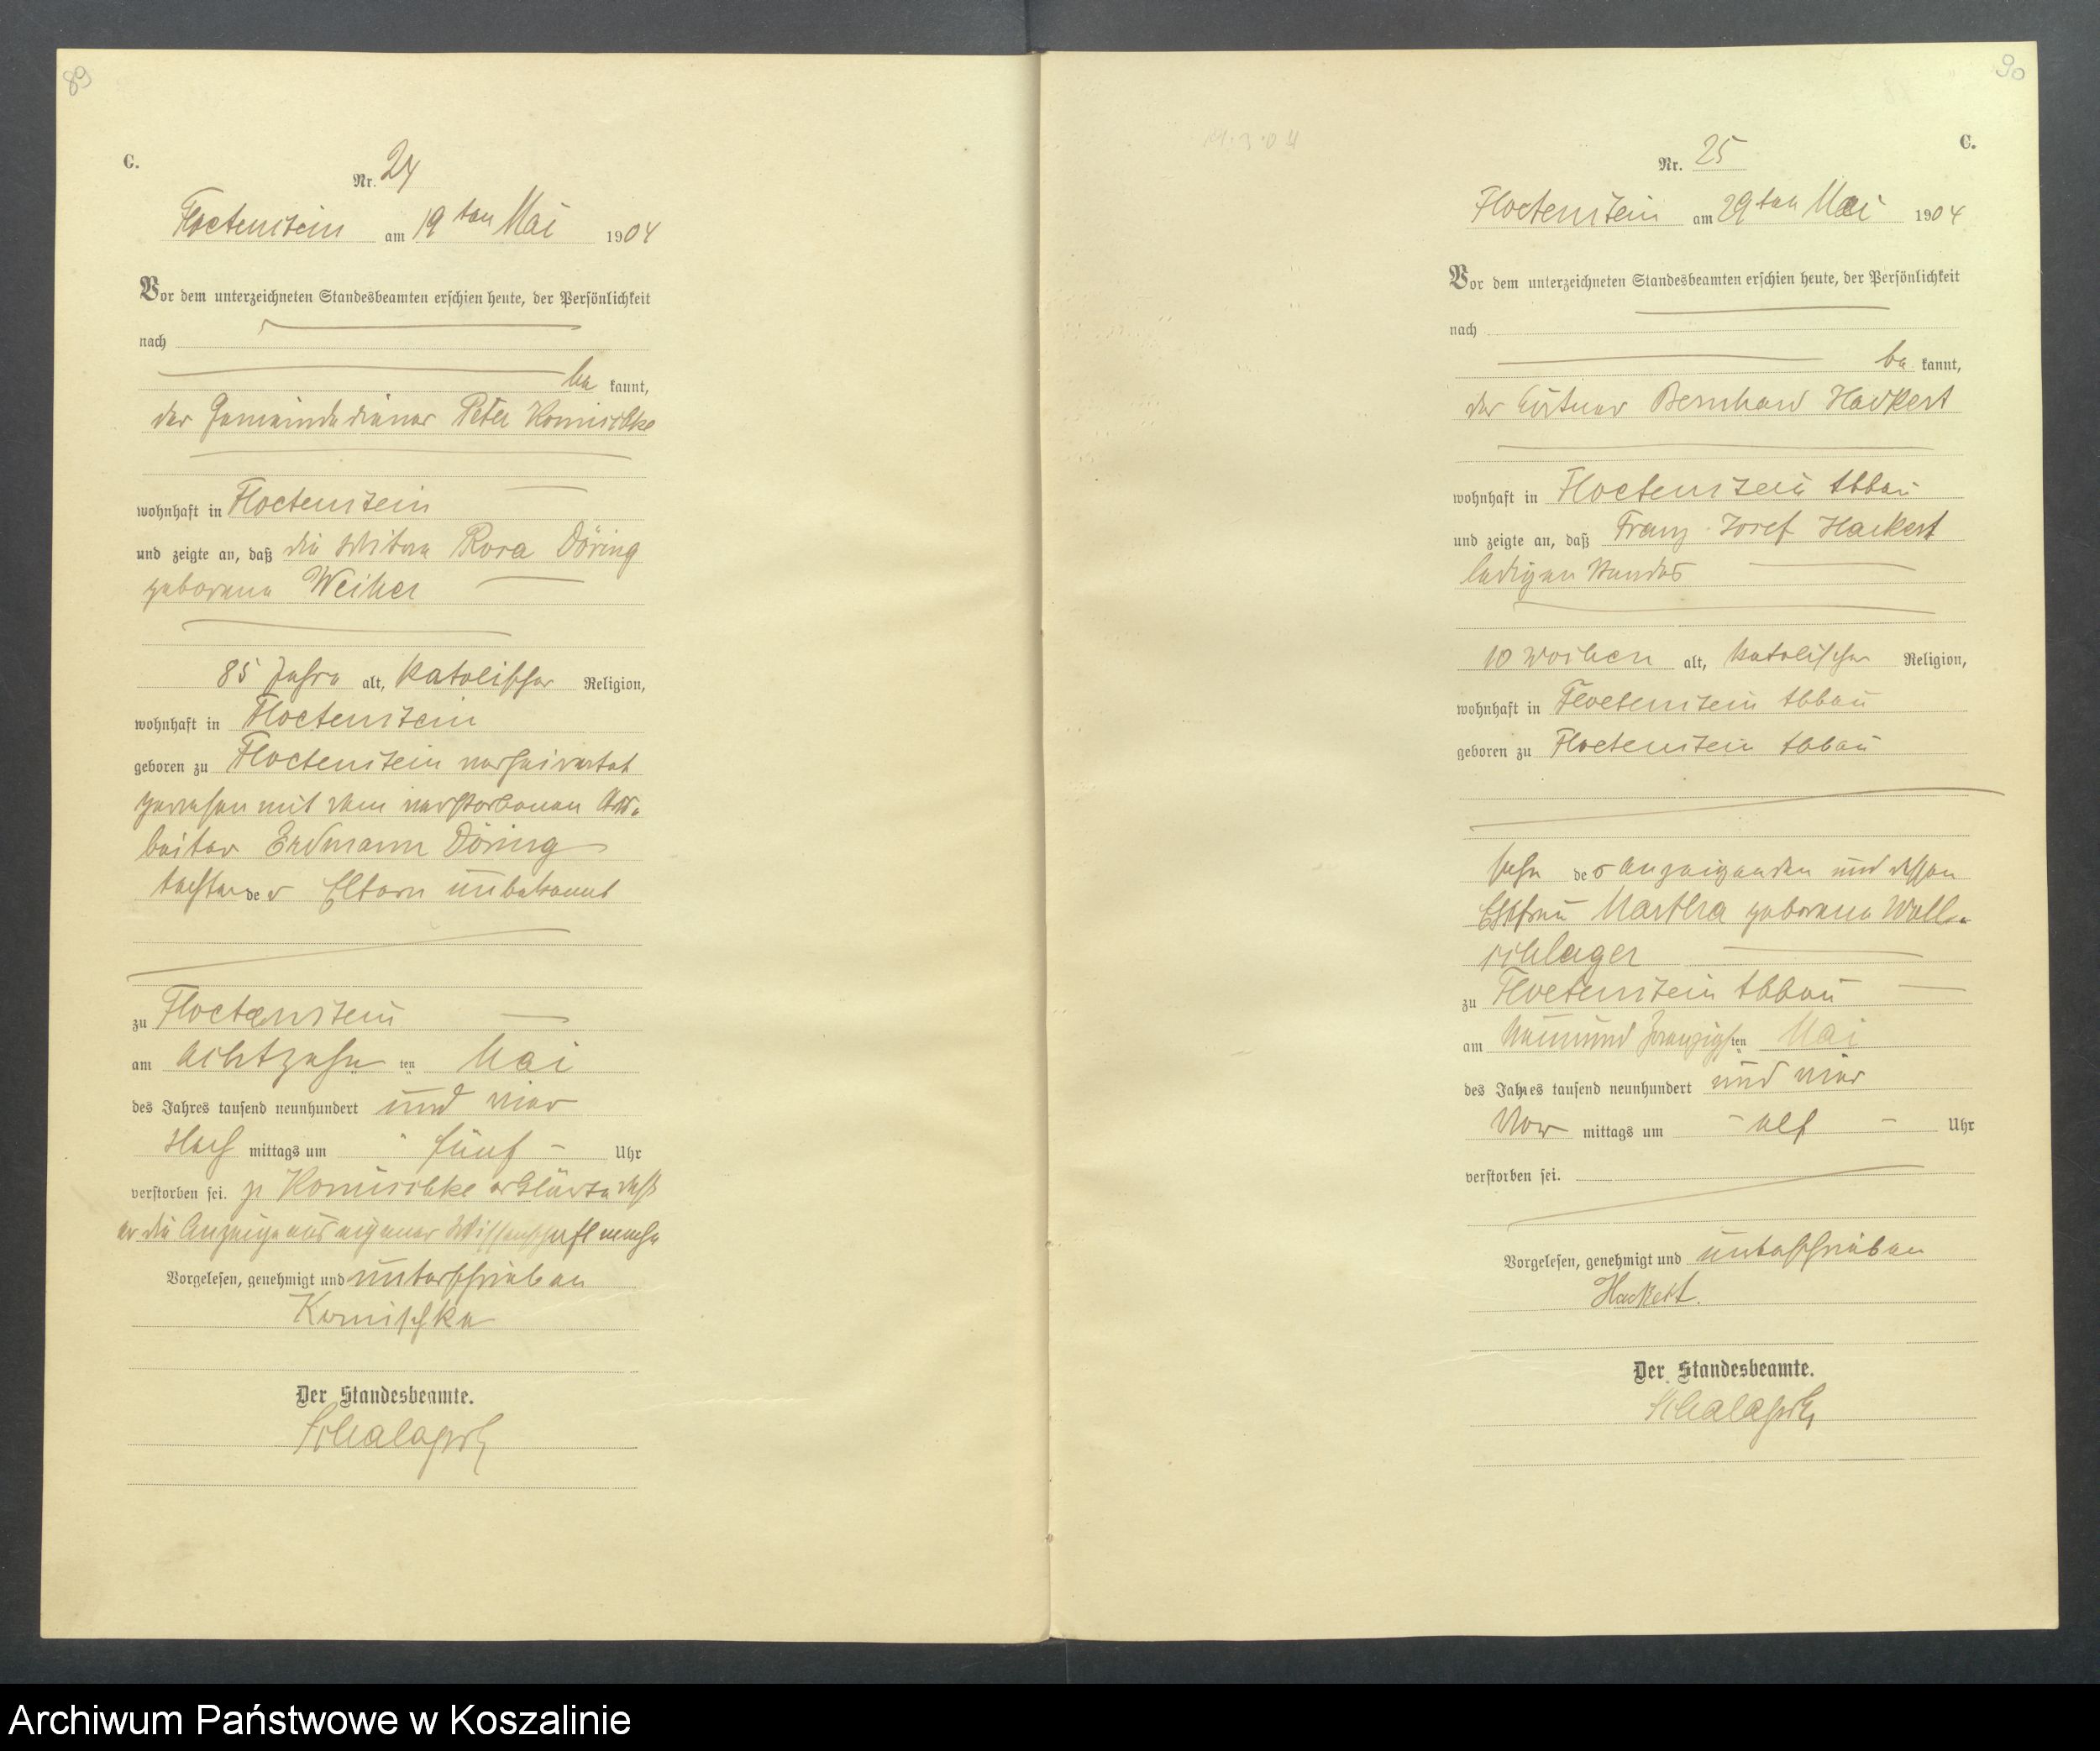 89
C.
Nr. 24
Floetenstein am 19ten Mai 1904
Vor dem unterzeichneten Standesbeamten erschien heute, der Persönlichkeit
nach
be kannt,
der Gemeindediener Peter Komischke
wohnhaft in Floetenstein
und zeigte an, daß die Witwe Rosa Döring
geborene Weiher
85 Jahre alt, katolischer Religion,
wohnhaft in Floetenstein
geboren zu Floetenstein verheiratet
gewesen mit dem verstorbenen Ar-
beiter Erdmann Döring
Tochter der Eltern unbekannt
zu Floetenstein
am achtzehn ten Mai
des Jahres tausend neunhundert und vier
Nach mittags um fünf Uhr
verstorben sei. p Komischke erklärte daß
er die Anzeige aus eigener Wissenschaft mache
Vorgelesen, genehmigt und unterschrieben
Komischke
Der Standesbeamte.
90
C.
Nr. 25
Floetenstein am 29ten Mai 1904
Vor dem unterzeichneten Standesbeamten erschien heute, der Persönlichkeit
nach
be kannt,
der Bernhard Hackert
wohnhaft in Floetenstein Abbau
und zeigte an, daß Franz Josef Hackert
ledigen Standes
10 Wochen alt, katolischer Religion,
wohnhaft in Floetenstein Abbau
geboren zu Floetenstein Abbau
Sohn des Anzeigenden und dessen
Ehefrau Martha geborene Woll-
schlager
zu Floetenstein Abbau
am neunundzwanzigsten Mai
des Jahres tausend neunhundert und vier
Vor mittags um elf Uhr
verstorben sei.
Vorgelesen, genehmigt und unterschrieben
Hackert.
Der Standesbeamte.
Archiwum Państwowe w Koszalinie